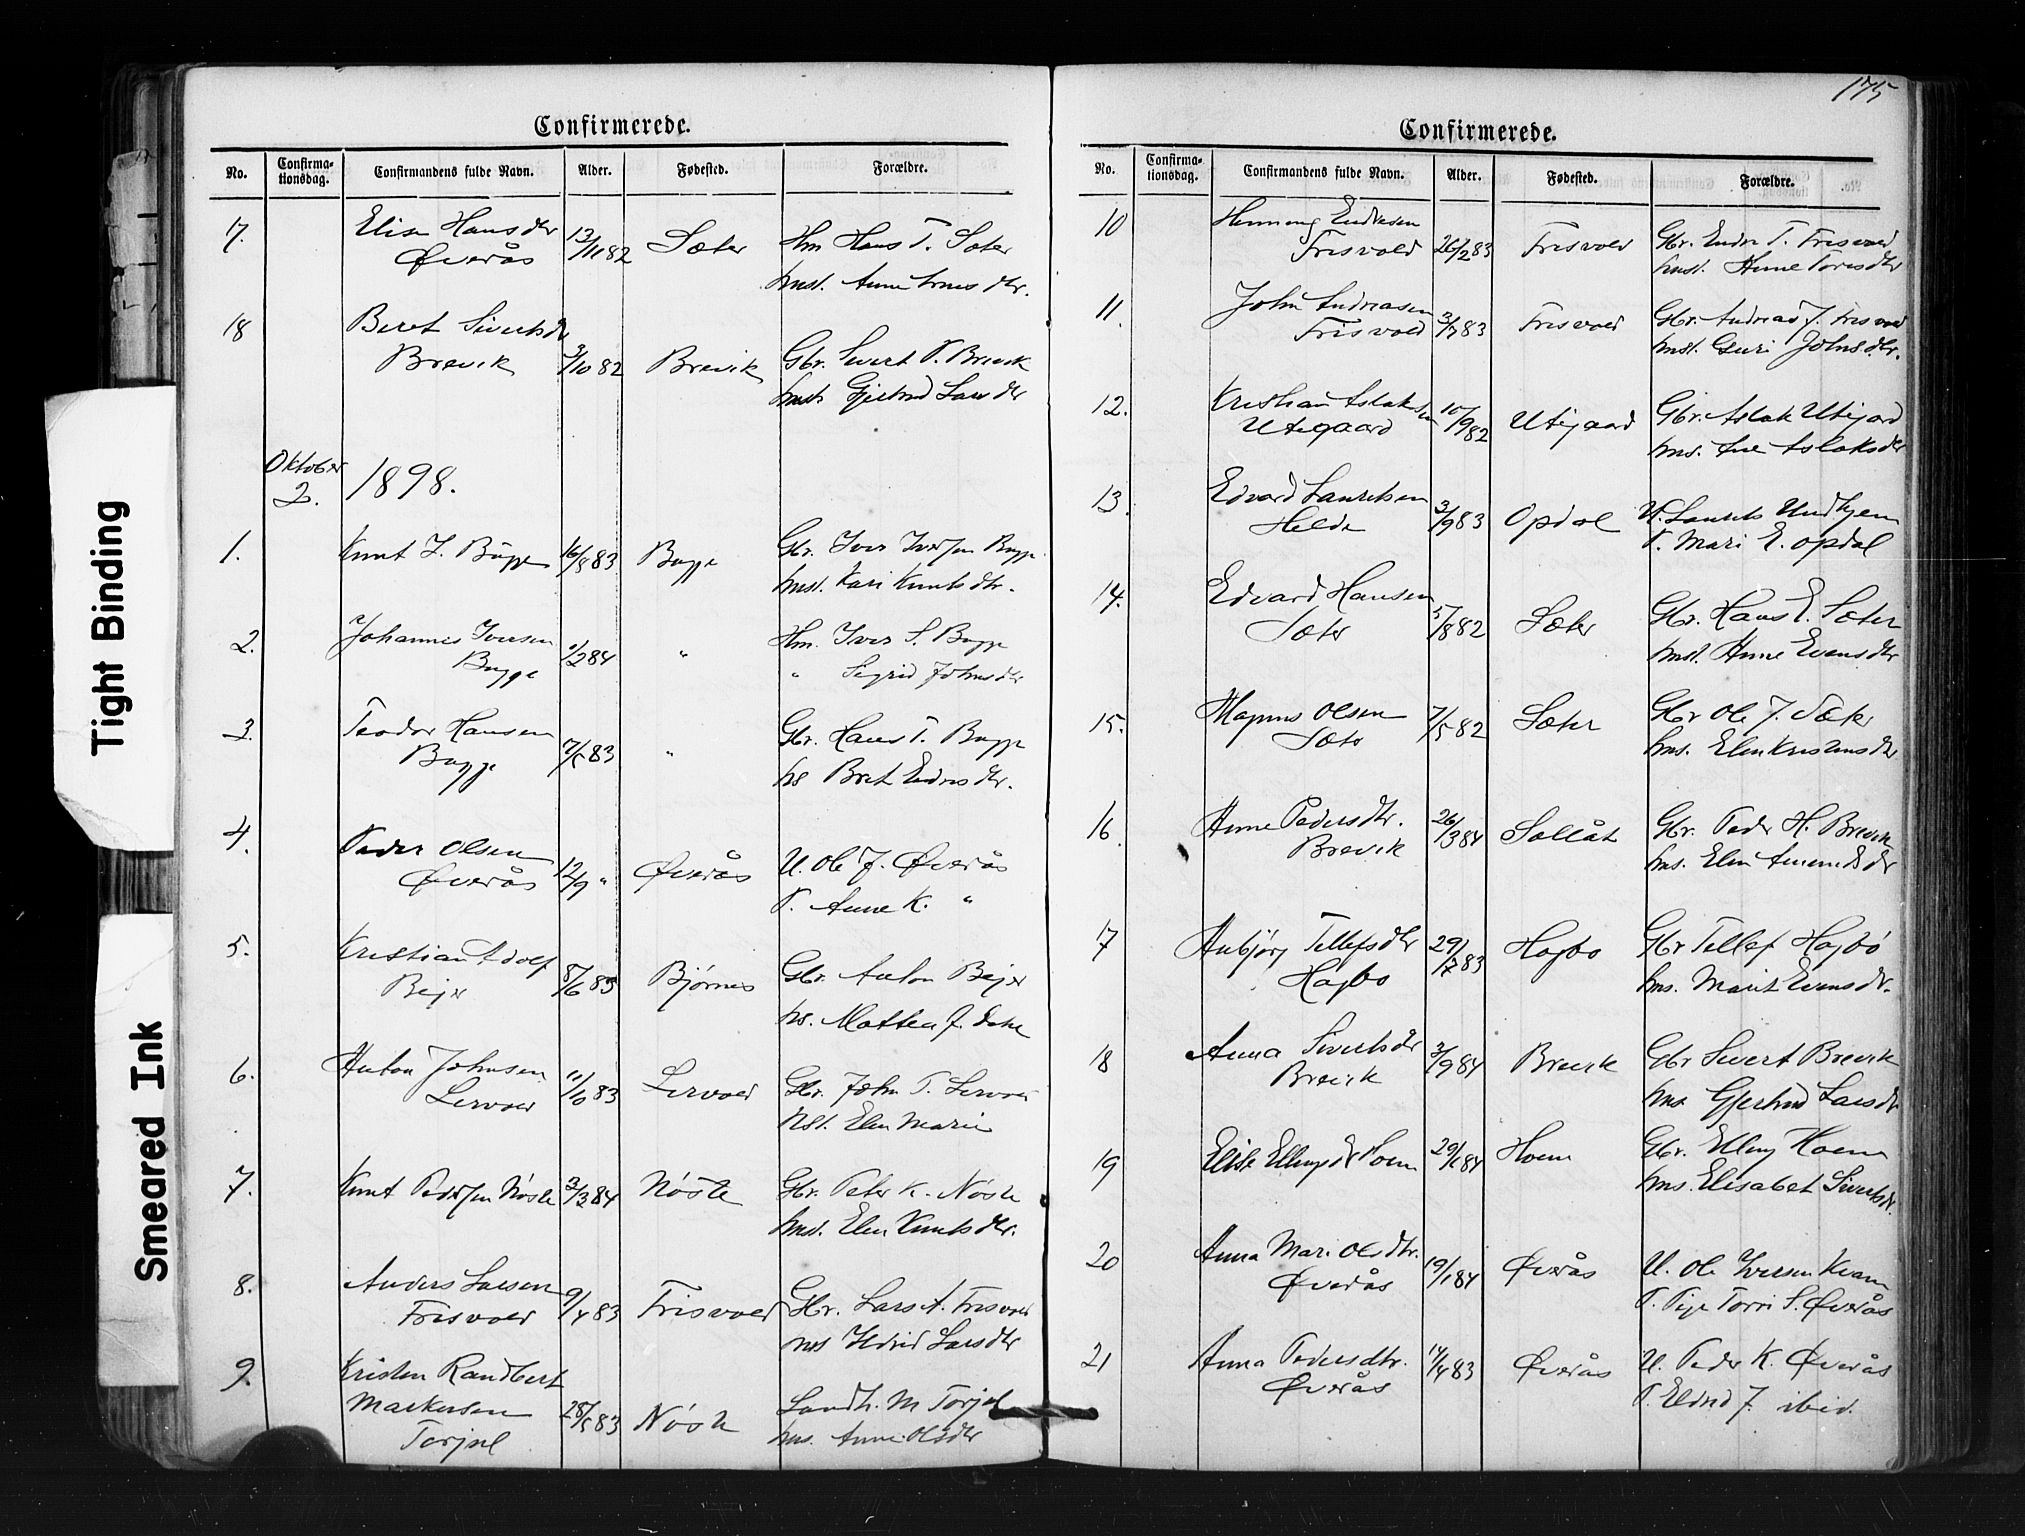 175
Confirmerede.
No. Confirma-tionsdag. Confirmandens fulde Navn. Alder. Fødested. Forældre.
17. Elise Hansdtr Øverås 13/11 82 Sæter Hm Hans T. Sæter
hust. Anne dtr.
18 Beret Sivertsdtr Brevik 3/10 82 Brevik Gbr. Sivert P. Brevik
hust. Gjertrud Larsdtr
Oktober 2. 1898.
1. Knut I. Bugge 16/8 83 Bugge Gbr. Iver Iversen Bugge
hust. Kari Knutsdtr.
2. Johannes Iversen Bugge 1/2 84 " Hm. Iver S. Bugge
" Sigrid Johnsdtr
3. Teodor Hansen Bugge 7/5 83 " Gbr. Hans T. Bugge
hs Bret Endresdtr.
4. Peder Olsen Øverås 12/9 " Øverås U. Ole J. Øverås
P. Anne K. "
5. Kristian Adolf Bejer 8/6 83 Bjørnes Gbr. Anton Bejer
hs. Mattea J.
6. Anton Johnsen Lervold 11/10 83 Lervold Gbr. John T. Lervold
hst. Elen Marie
7. Knut Pedersen Nöste 3/3 84 Nöste Gbr. Peter K. Nöste
hust. Elen Knutsdtr.
8. Anders Larsen Frisvold 9/4 83 Frisvold Gbr. Lars A. Frisvold
hus Larsdtr
9. Kristen Randbert Markusen Torjul 28/5 83 Nöste Landh. M Torjul
hus. Anne Olsdtr
Confirmerede.
No. Confirma-tionsdag. Confirmandens fulde Navn. Alder. Fødested. Forældre.
10 Henning Endresen Frisvold 26/2 83 Frisvold Gbr. Endre T. Frisvold
hust. Anne Toresdtr
11. John Andreasen Frisvold 3/7 83 Frisvold Gbr. Andreas J. Frisvold
hust. Guri Johnsdtr.
12. Kristian Aslaksen Utigaard 10/9 82 Utigaard Gbr. Aslak Utigard
hus. Ane Aslaksdtr
13. Edvard Lauritsen Helde 3/9 83 Opdøl U. Laurits Undhjem
P. Mari E. Opdøl
14. Edvard Hansen Sæter 5/8 82 Sæter Gbr. Hans E. Sæter
hust. Anne Evensdtr
15. Magnus Olsen Sæter 7/5 82 Sæter Gbr Ole J. Sæter
hus. Elen Kristensdtr
16. Anne Pedersdtr. Brevik 26/3 84 Sollåt Gbr. Peder H. Brevik
hus. Elen Amundsdtr
17 Anbjörg Tellefsdtr Hagbö 29/7 83 Hagbö Gbr Tellef Hagbö
hus. Marit Evensdtr.
18 Anna Sivertsdtr Brevik 3/9 84 Brevik Gbr Sivert Brevik
hus Gjertrud Larsdtr
19 Elise Ellingsdtr Hoem 29/1 84 Hoem Gbr. Elling Hoem
hus. Elisabet Sivertsdtr.
20 Anna Mari Olsdtr. Øverås 19/1 84 Øverås U. Ole Iversen Kvam
P. Pige Torri S. Øverås
21 Anna Pedersdtr. Øverås 14/4 83 Øverås U. Peder K. Øverås
P. Eldrid J. ibid.
Tight Binding
Smeared Ink